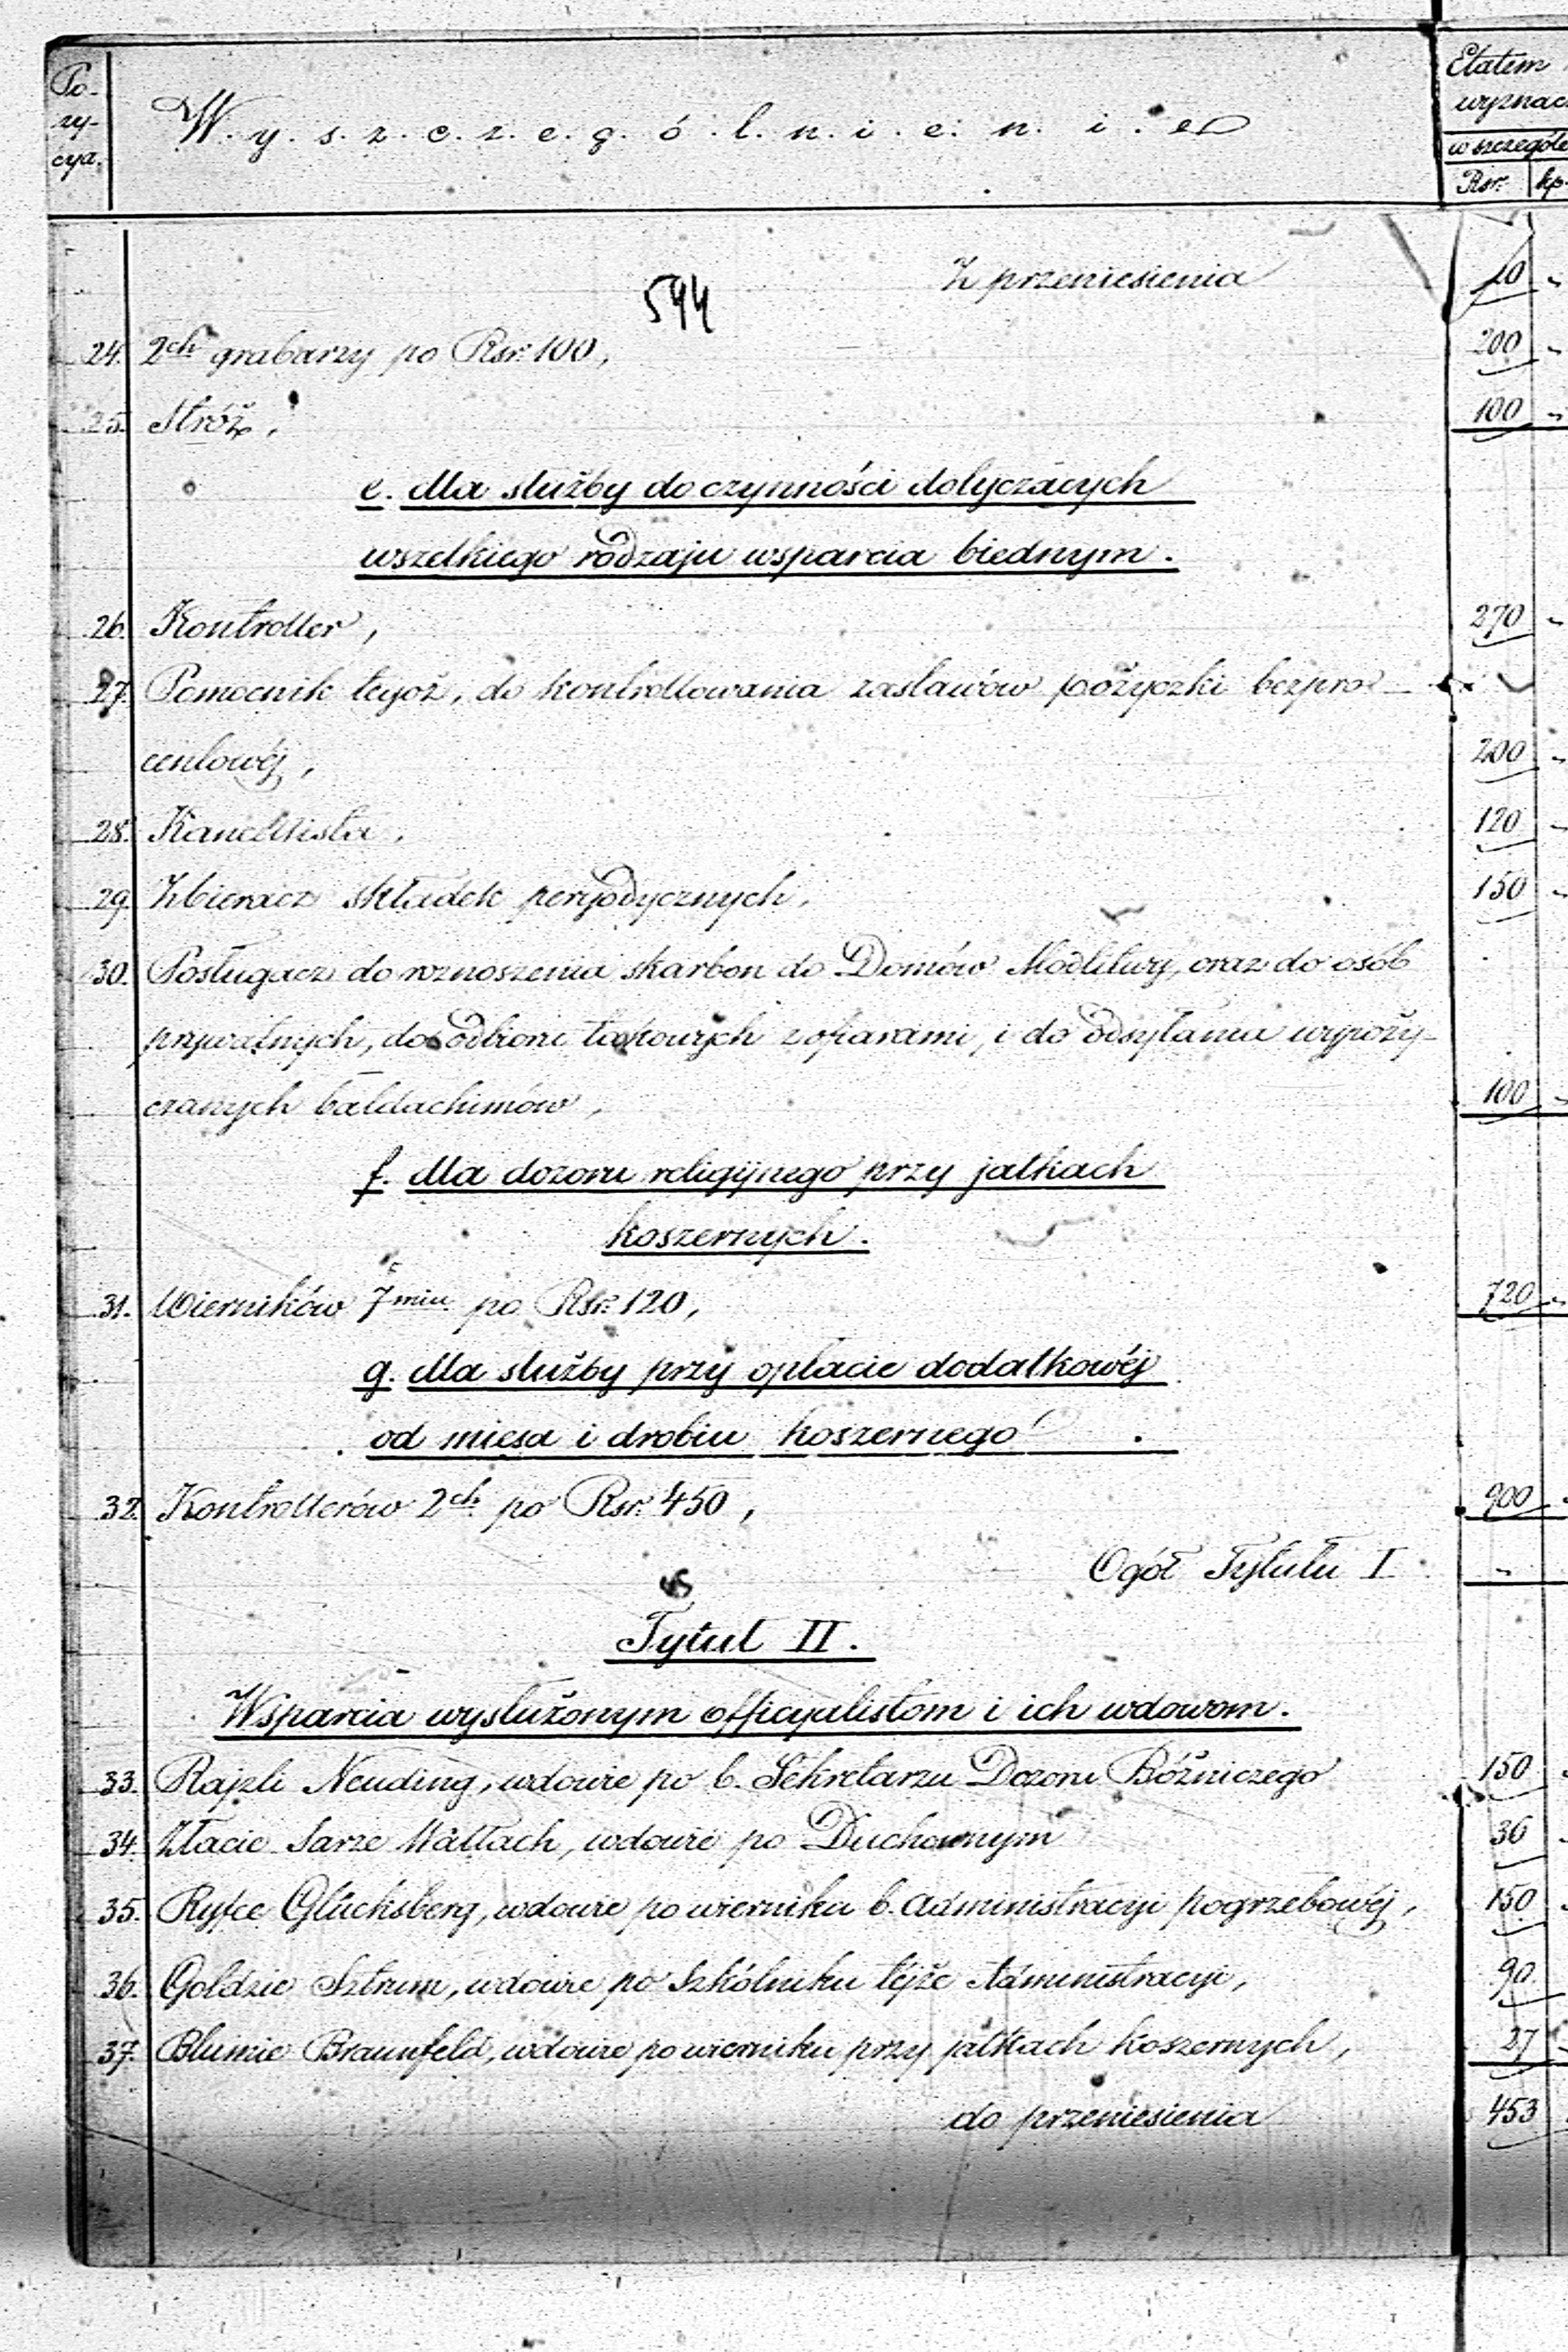 Po-
zy-
cya.
W. y. s. z. c. z. e. g. ó. l. n. i. e. n. i. e
Etatem
wyznac
w szczególe
Rsr. kp.
594
Z przeniesienia 10 "
24. 2ch grabarzy po Rsr. 100, 200 "
25. Stróż, 100 "
e. dla służby do czynności dotyczących
wszelkiego rodzaju wsparcia biednym.
26. Kontroller, 270 "
27. Pomocnik tegoż, do kontrollowania zastawów pożyczki bezpro-
centowéj, 200 "
28. Kancellista, 120 "
29. Zbieracz składek peryodycznych, 150 "
30. Posługacz do roznoszenia skarbon do Domów Modlitwy, oraz do osób
prywatnych, do odbioru takowych z ofiarami, i do odsyłania wypoży-
czanych baldachimów, 100 "
f. dla dozoru religijnego przy jatkach
koszernych.
31. Wierników 7miu po Rsr. 120, 720 "
g. dla służby przy opłacie dodatkowéj
od mięsa i drobiu koszernego.
32. Kontrollerów 2ch po Rsr. 450, 900 "
Ogół Tytułu I. "
Tytuł II.
Wsparcia wysłużonym officyalistom i ich wdowom.
33. Rajzli Neuding, wdowie po b. Sekretarzu Dozoru Bóżniczego 150
34. Złacie Sarze Wallach, wdowie po Duchownym 36
35. Ryfce Glücksberg, wdowie po wierniku b. Administracyi pogrzebowéj, 150
36. Gołdzie Sztrum, wdowie po Szkólniku téjże Administracyi, 90
37. Blumie Braunfeld, wdowie po wierniku przy jatkach koszernych, 27
do przeniesienia 453